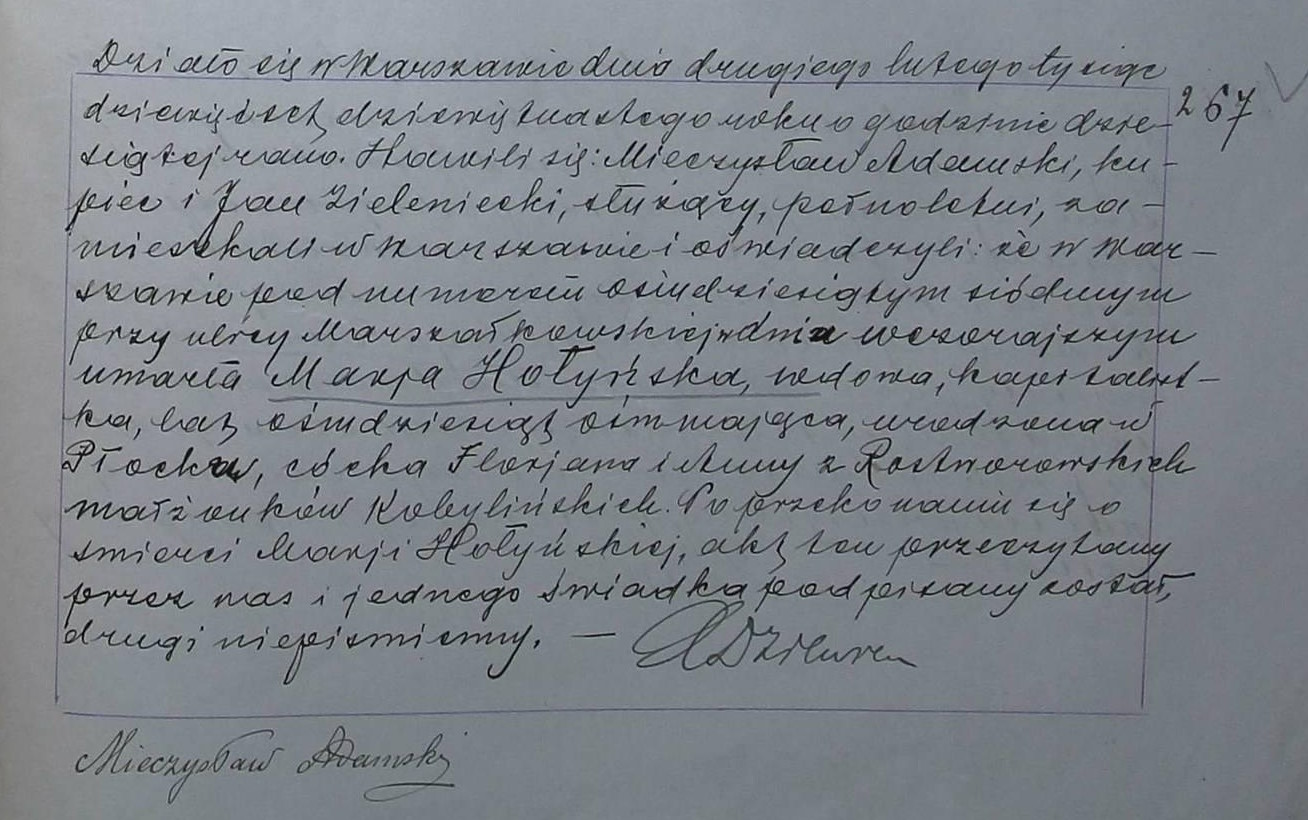 Działo się w Warszawie dnia drugiego lutego tysiąc
dziewięćset dziewiętnastego roku o godzinie dzie-
siątej rano. Stawili się: Mieczysław Adamski, ku-
piec i Jan Zieleniecki, służący, pełnoletni, za-
mieszkali w Warszawie i oświadczyli: że w War-
szawie pod numerem ośmdziesiątym siódmym
przy ulicy Marszałkowskiej w dniu wczorajszym
umarła Marja Hołyńska, wdowa, kapitalist-
ka, lat ośmdziesiąt ośm mająca, urodzona w
Płocku, córka Florjana i Anny z Rostworowskich
małżonków Kobylińskich. Po przekonaniu się o
śmierci Marji Hołyńskiej, akt ten przeczytany
przez nas i jednego świadka podpisany został,
drugi niepiśmienny. —
267
Mieczysław Adamski